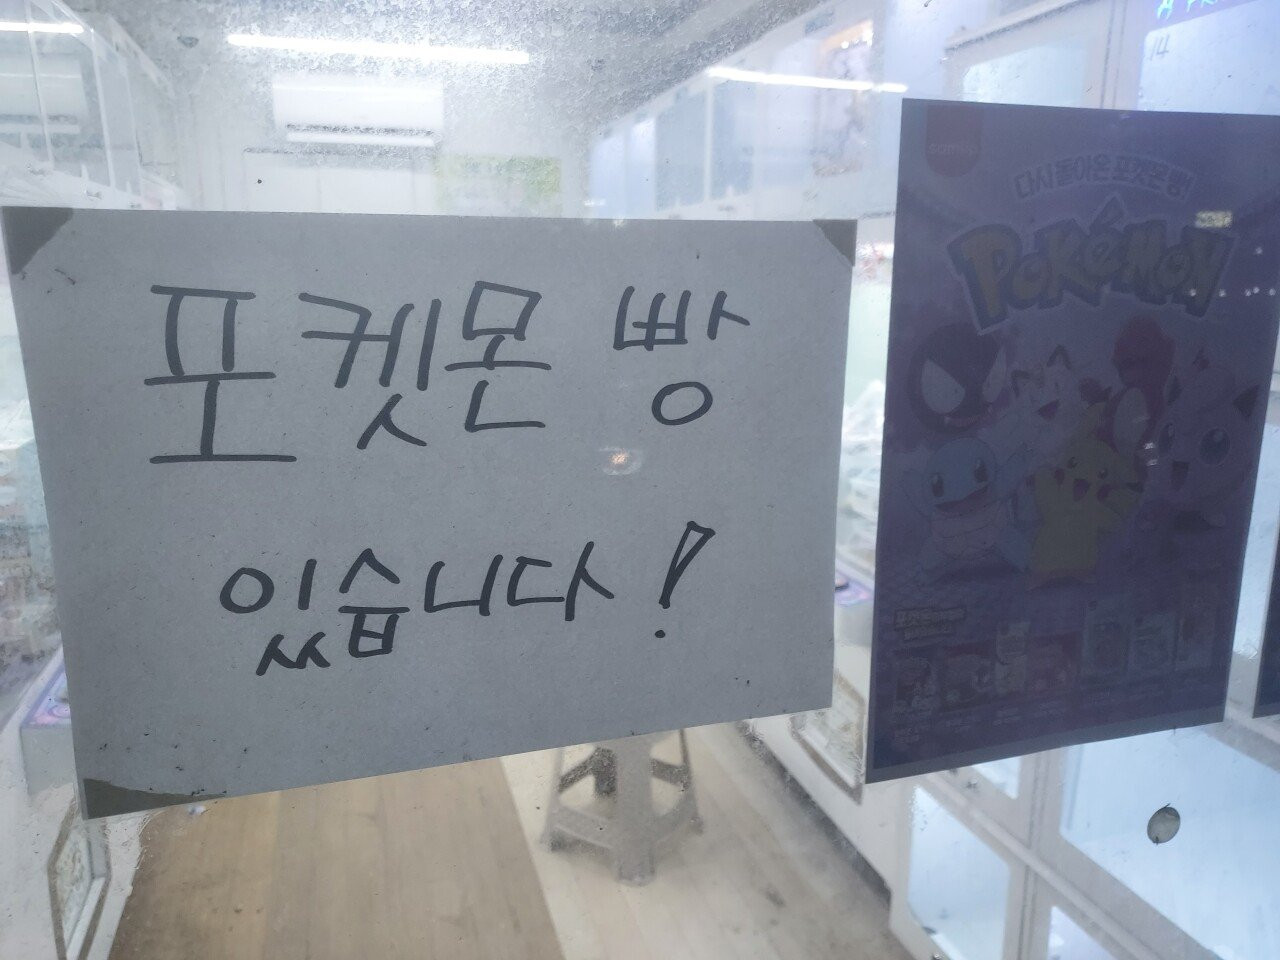 포켓몬 빵
있습니다!
다시 돌아온 포켓몬 빵!
POKéMON
14